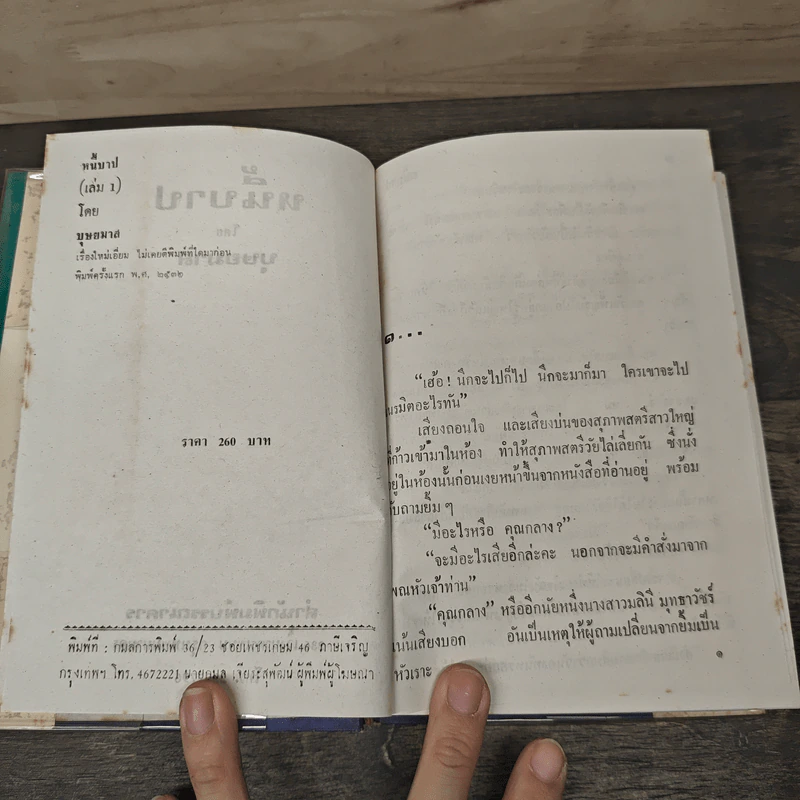 หนี้บาป
(เล่ม 1)
โดย
บุษยมาส
เรื่องใหม่เอี่ยม ไม่เคยตีพิมพ์ที่ใดมาก่อน
พิมพ์ครั้งแรก พ.ศ. ๒๕๓๒
ราคา 260 บาท
พิมพ์ที่ : กมลการพิมพ์ 36/23 ซอยเพชรเกษม 46 ภาษีเจริญ
กรุงเทพฯ โทร. 4672221 นายกมล เจียระสุพัฒน์ ผู้พิมพ์ผู้โฆษณา
๑...
“เฮ้อ! นึกจะไปก็ไป นึกจะมาก็มา ใครเขาจะไป
เนรมิตอะไรทัน”
เสียงถอนใจ และเสียงบ่นของสุภาพสตรีสาวใหญ่
ที่ก้าวเข้ามาในห้อง ทำให้สุภาพสตรีวัยไล่เลี่ยกัน ซึ่งนั่ง
อยู่ในห้องนั้นก่อนเงยหน้าขึ้นจากหนังสือที่อ่านอยู่ พร้อม
กับถามยิ้ม ๆ
“มีอะไรหรือ คุณกลาง?”
“จะมีอะไรเสียอีกล่ะคะ นอกจากจะมีคำสั่งมาจาก
พณหัวเจ้าท่าน”
“คุณกลาง” หรืออีกนัยหนึ่งนางสาวมลินี มุทธาวัชร์
เน้นเสียงบอก อันเป็นเหตุให้ผู้ถามเปลี่ยนจากยิ้มเป็น
หัวเราะ
๑